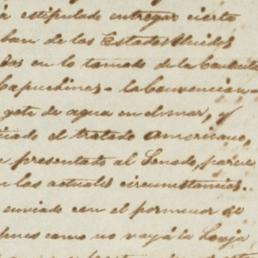 á estipulado entregar cierto
ban de los Estados Unidos
en lo tomado de la
Capuchinas. la convencion
gota de agua en el mar, y
el tratado Americano,
presentado al Senado, porque
en las actuales circunstancias.
enviado con el pormenor de
pues como no vaya la